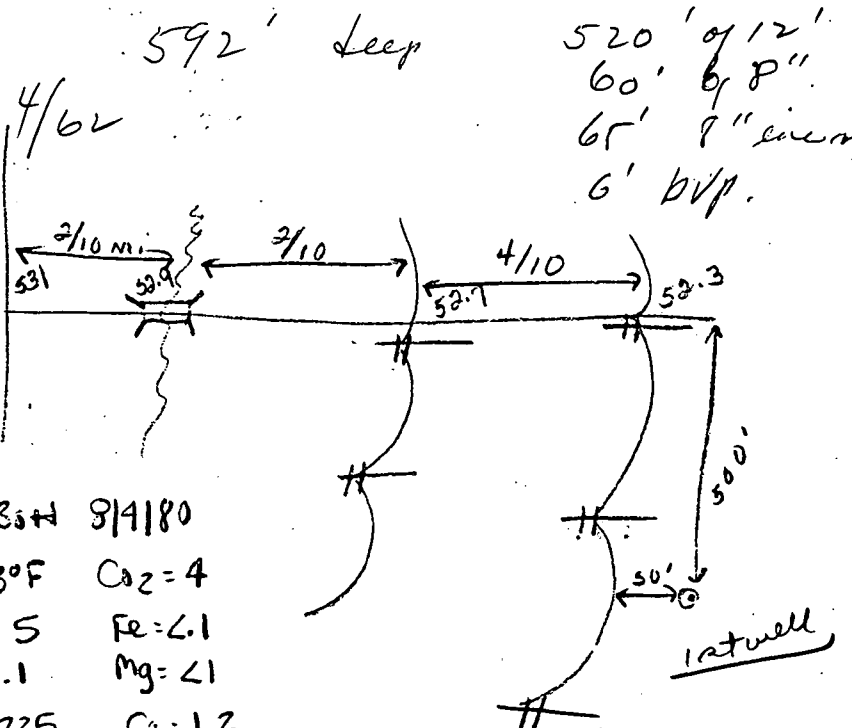 592' deep
520' of 12"
60' of 8"
65' 8"
6' bvp.
4/62
2/10 mi.
2/10
4/10
531
52.9
52.7
52.3
500'
50'
1st well
8/4/80
°F Co2 = 4
5 Fe = <.1
.1 Mg = <1
225